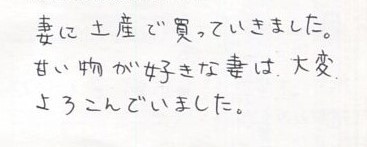 妻に土産で買っていきました。
甘い物が好きな妻は、大変、
よろこんでいました。